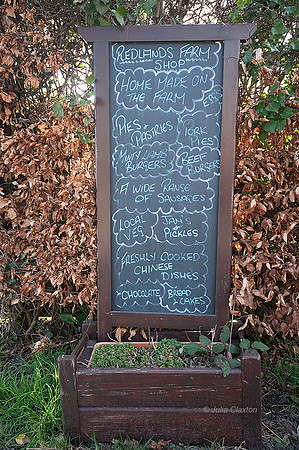 REDLANDS FARM
SHOP
HOME MADE ON
THE FARM
PIES
PASTIES
PORK
PIES
LAMB
BURGERS
BEEF
BURGERS
A WIDE RANGE
OF SAUSAGES
LOCAL
VEG
JAM'S
PICKLES
FRESHLY COOKED
CHINESE
DISHES
CHOCOLATE BREAD
CAKES
© Julia Claxton